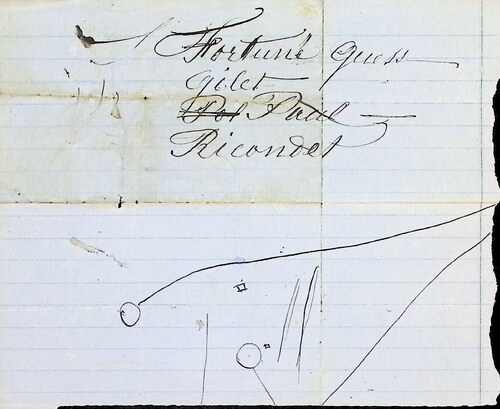 Fortune guess
gilet
Pot Paul
Ricondet